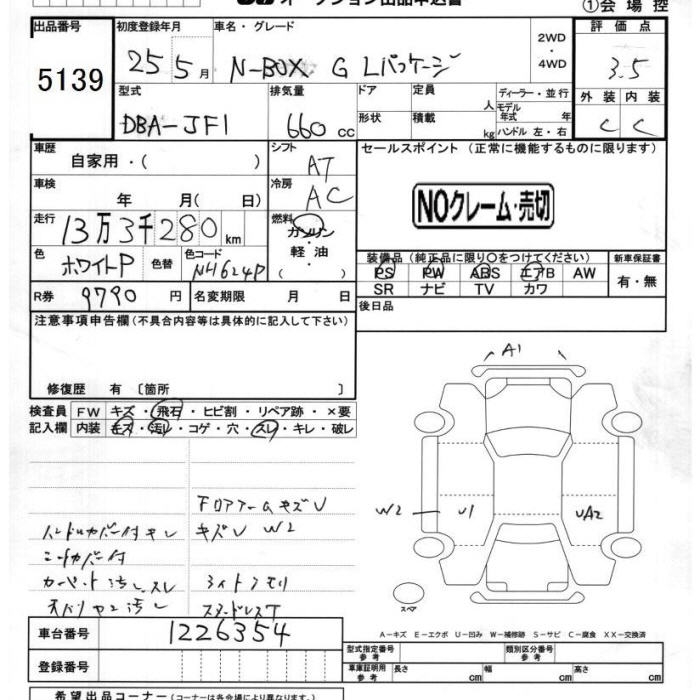 オークション出品申込書
①会場控
出品番号 5139
初度登録年月 25 5月
車名・グレード N-BOX G Lパッケージ
2WD・4WD
評価点 3.5
型式 DBA-JF1
排気量 660 cc
ドア 形状
定員 人 積載 kg
ディーラー・並行
モデル年式 年式
ハンドル 左・右
外装 内装
C C
車歴 自家用・( )
シフト AT
セールスポイント (正常に機能するものに限ります)
車検 年 月( 日)
冷房 AC
NOクレーム・売切
走行 13万3千280km
燃料 ガソリン・軽油 ( )
色 ホワイトP 色替 色コード NH624P
装備品 (純正品に限り○をつけてください)
新車保証書
PS PW ABS エアB AW
有・無
SR ナビ TV カワ
R券 9790 円
名変期限 月 日
後日品
注意事項申告欄 (不具合内容等は具体的に記入して下さい)
修復歴 有 〔箇所 〕
検査員記入欄
FW キズ・飛石・ヒビ割・リペア跡・×要
内装 キズ・汚レ・コゲ・穴・スレ・キレ・破レ
A1
フロアアームキズU
ハンドルカバー付キレ
キズU W2
W2 U1 UA2
シートカバー付
カーペット汚レスレ
スタッドレスT
スペア
A-キズ E-エクボ U-凹み W-補修跡 S-サビ C-腐食 XX-交換済
車台番号 1226354
登録番号
型式指定番号 参考
類別区分番号 参考
車庫証明用 参考
長さ cm 幅 cm 高さ cm
希望出品コーナー (コーナーは各会場により異なります)